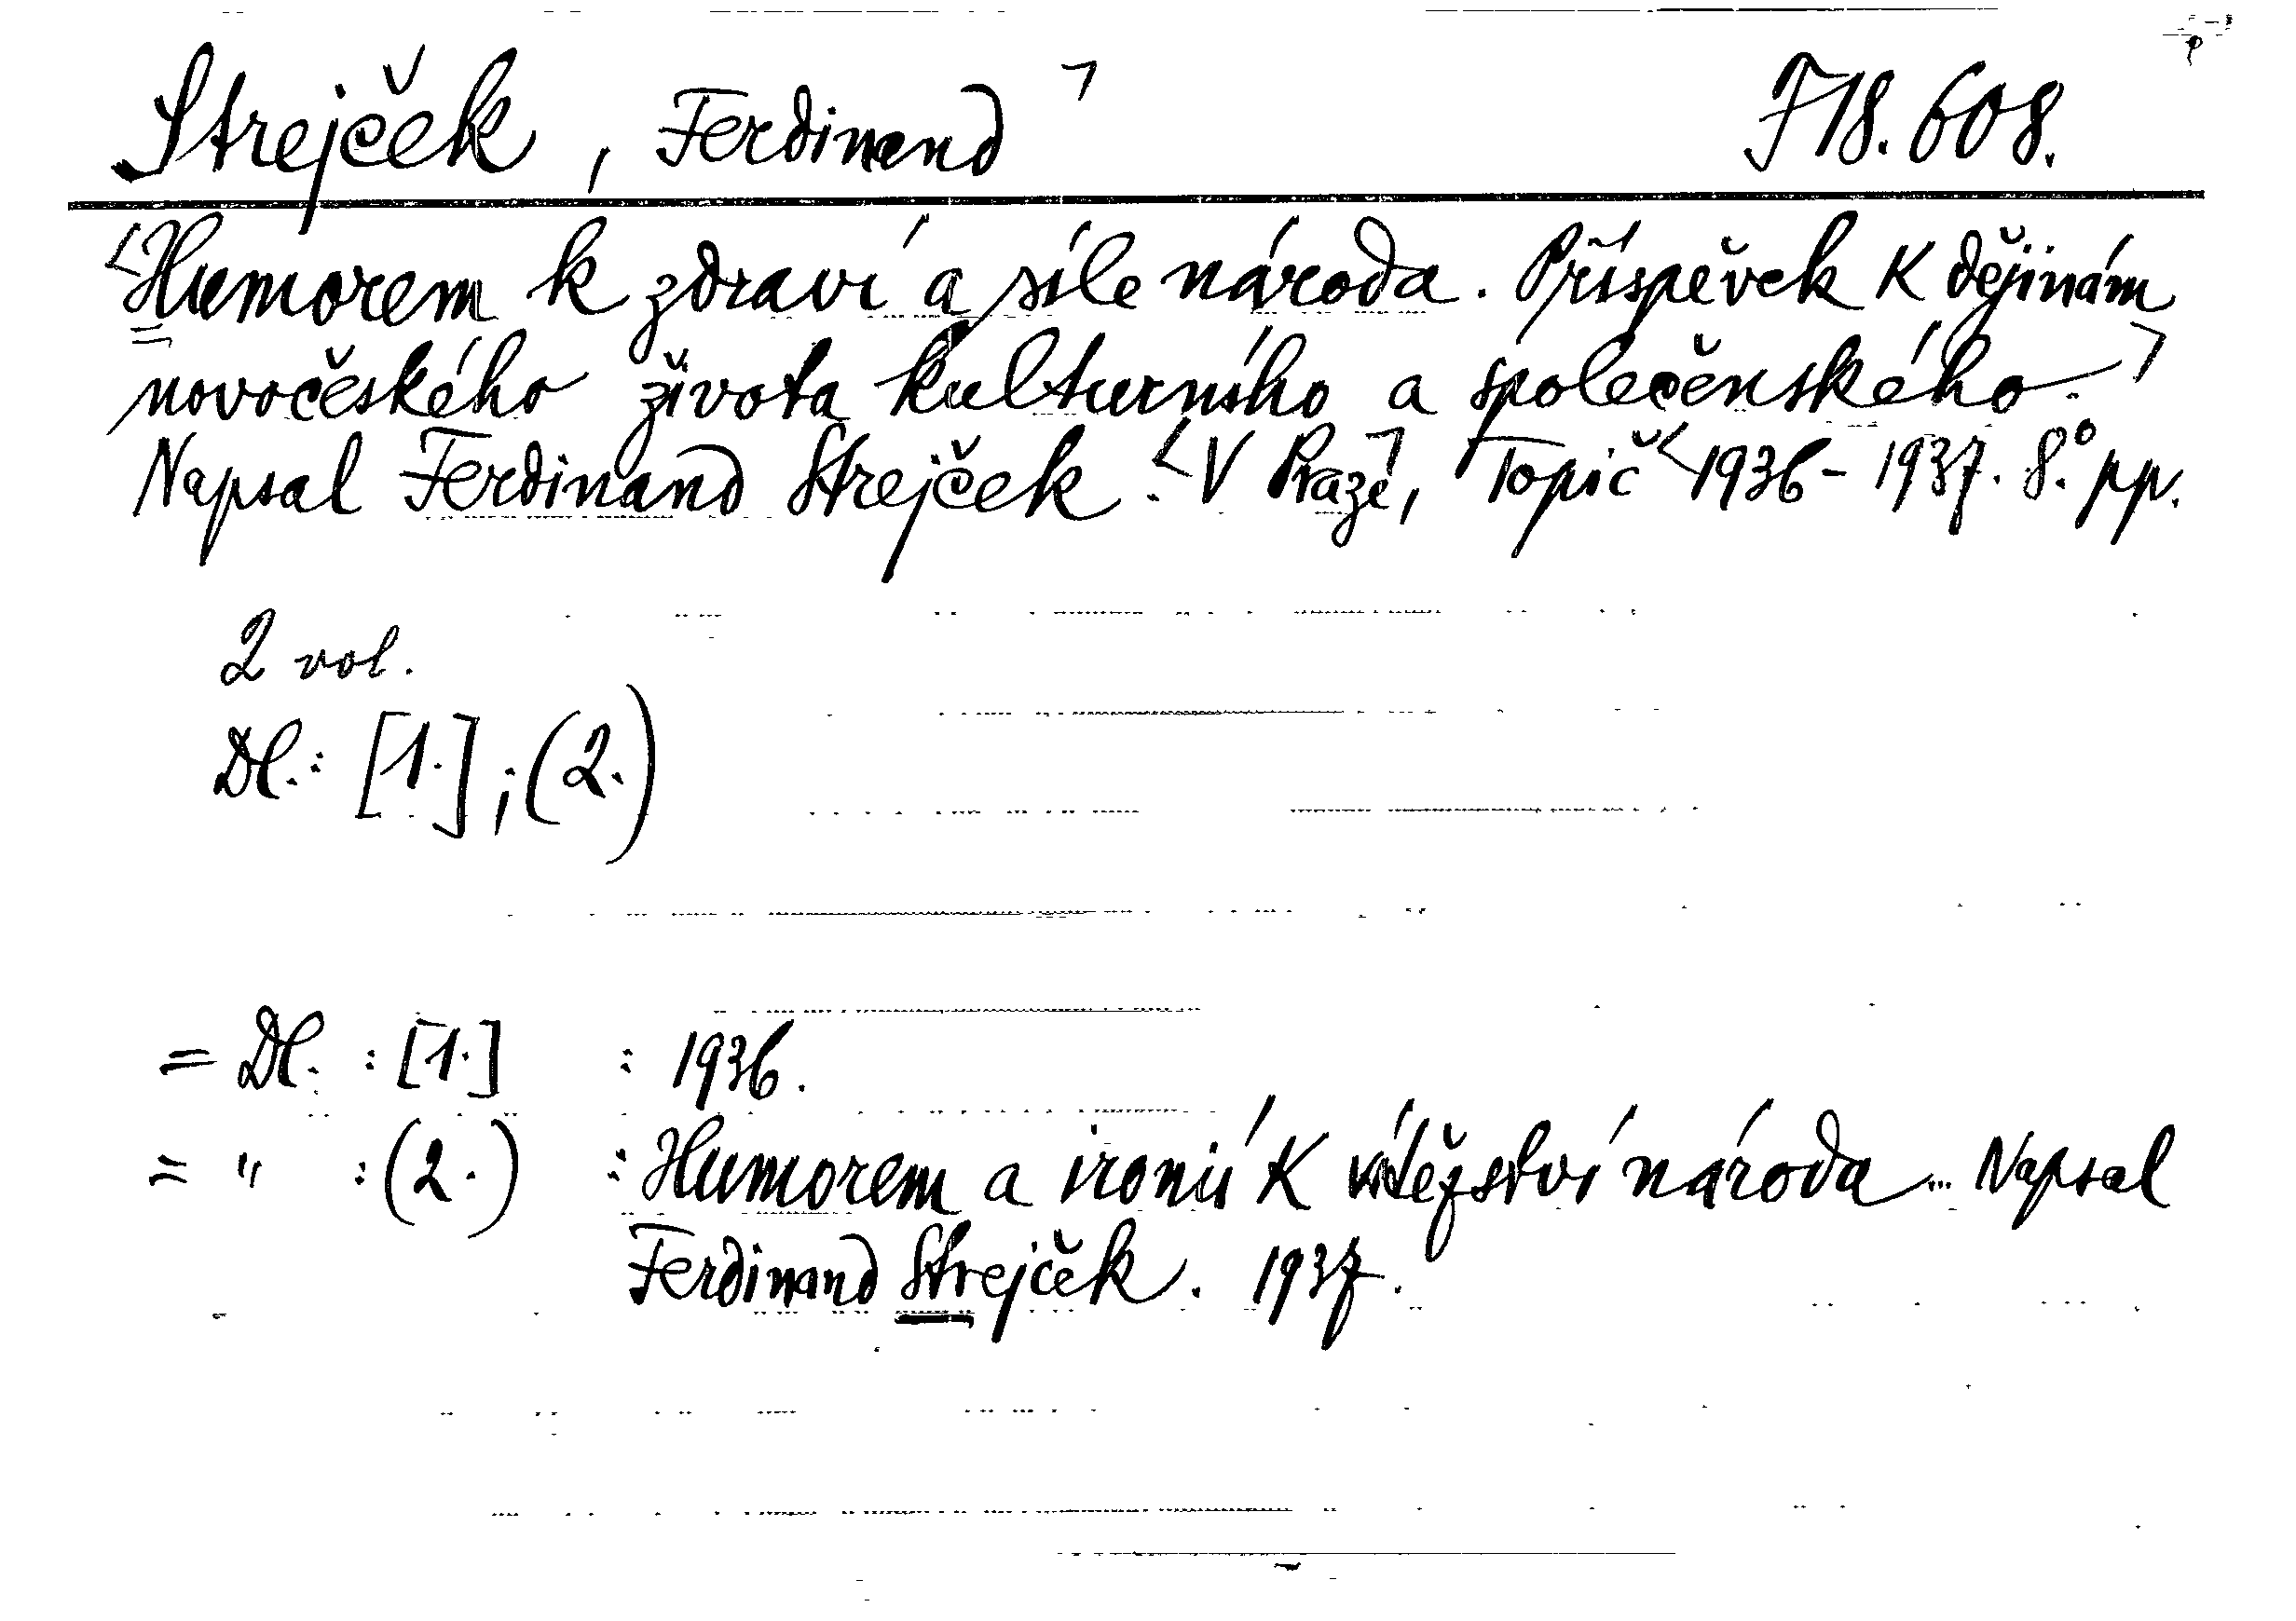 Strejček, Ferdinand⌝ J 18.608.
<Humorem k zdraví a síle národa. Příspěvek k dějinám
novočeského života kulturního a společenského.⌝
Napsal Ferdinand Strejček. <V Praze⌝, Topič <1936-1937. 8.° pp.
2 vol.
Dl.: [1.]; (2.)
= Dl. : [1.] : 1936.
= " : (2.) : Humorem a ironií k vítězství národa... Napsal
Ferdinand Strejček. 1937.